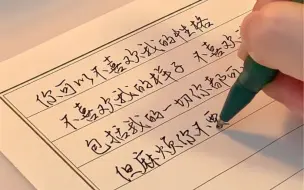 你可以不喜欢我的性格
不喜欢我的样子 不喜欢
包括我的一切你都可
但麻烦你不要